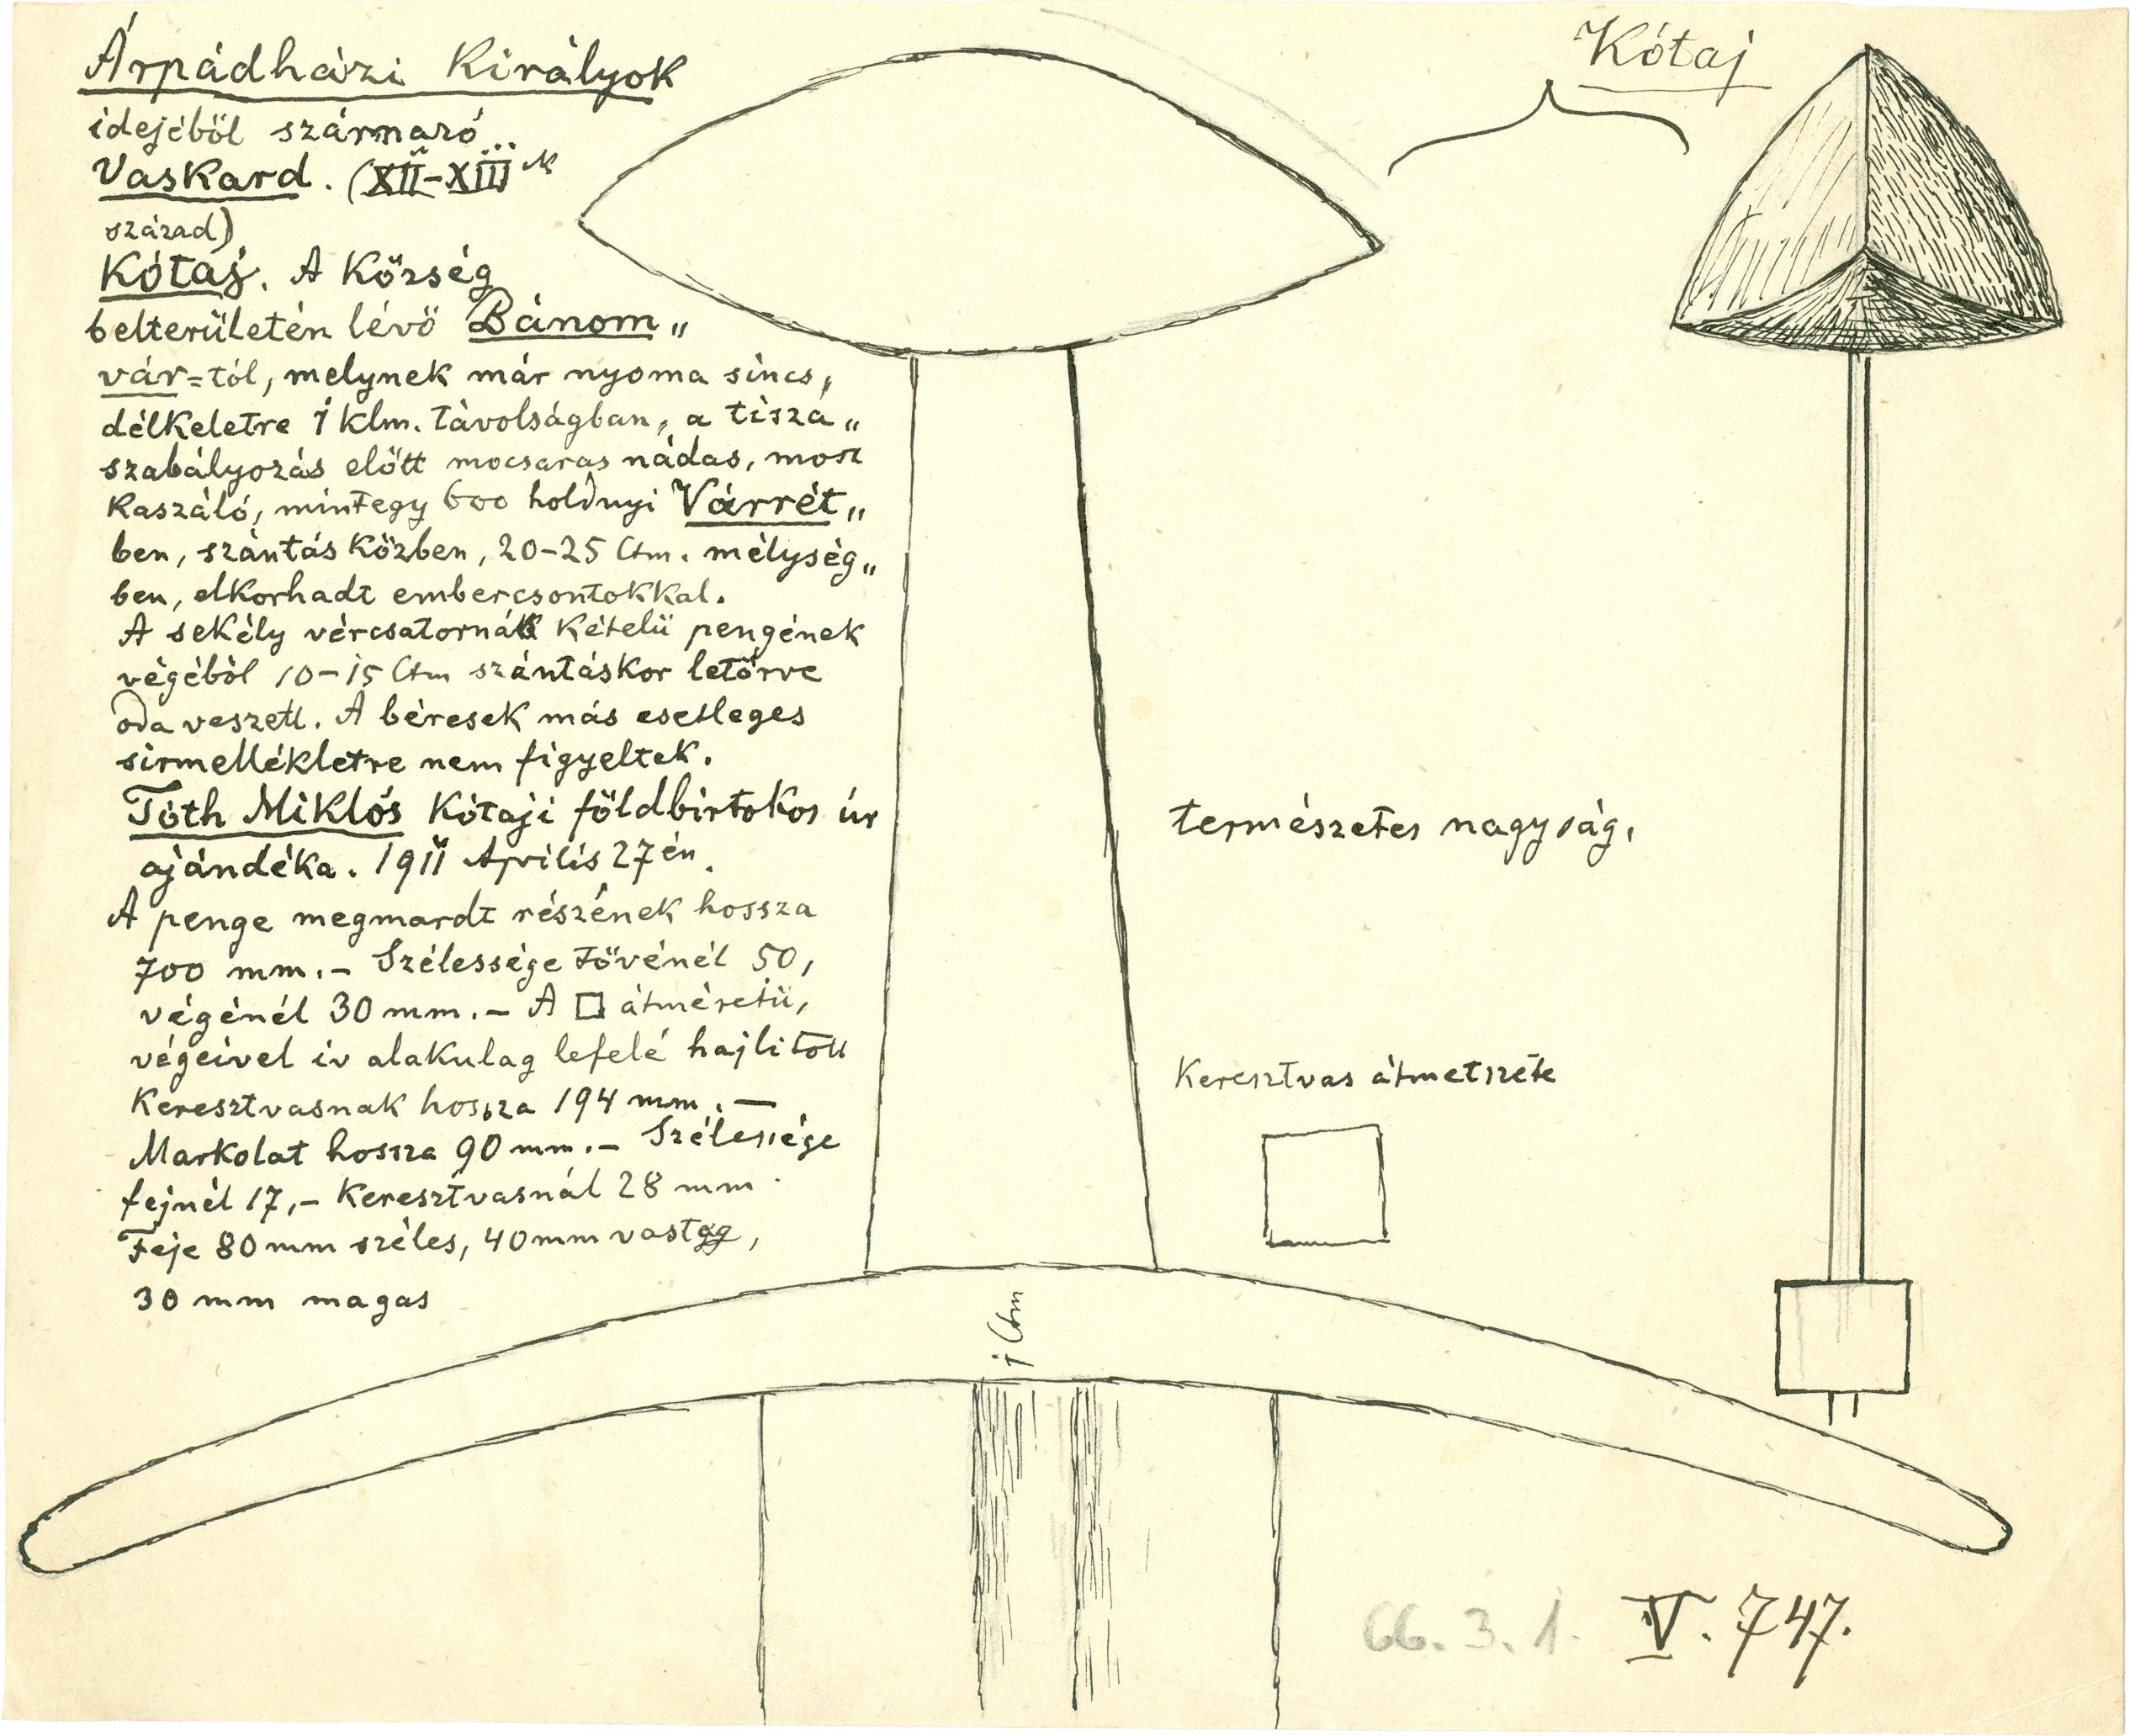 Árpádházi Királyok
idejéből származó
Vaskard. (XII-XIII ik
század)
Kótaj. A Község
belterületén lévő Bánom„
vár=tól, melynek már nyoma sincs,
délkeletre 1 klm. távolságban, a tisza„
szabályozás előtt mocsaras nádas, most
Kaszáló, mintegy 600 holdnyi Várrét„
ben, szántás közben, 20-25 Ctm. mélység„
ben, elkorhadt embercsontokkal.
A sekély vércsatornák kétélü pengének
végéből 10-15 Ctm szántáskor letörve
oda veszett. A béresek más esetleges
sirmellékletre nem figyeltek.
Tóth Miklós Kótaji földbirtokos úr
ajándéka. 1911 Április 27én.
A penge megmardt részének hossza
700 mm.- Szélessége tövénél 50,
végénél 30 mm.- A □ átméretü,
végeivel iv alakulag lefelé hajlitott
Keresztvasnak hossza 194 mm.—
Markolat hossza 90 mm.- Szélessége
fejnél 17,- Keresztvasnál 28 mm
Feje 80 mm széles, 40 mm vastgg,
30 mm magas
Kótaj
természetes nagyság.
Keresztvas átmetszete
1 Ctm
66. 3. 1. V. 747.